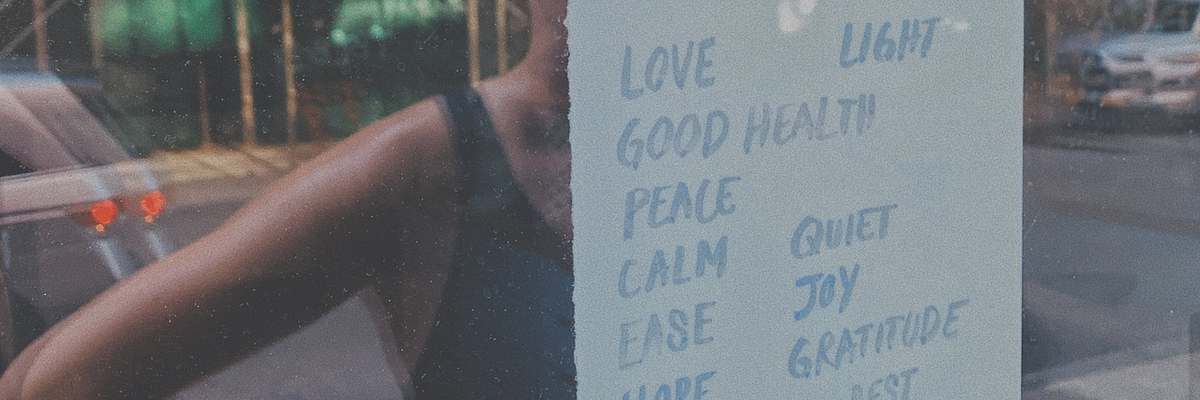 LOVE
LIGHT
GOOD HEALTH
PEACE
CALM
QUIET
JOY
EASE
GRATITUDE
HOPE
REST